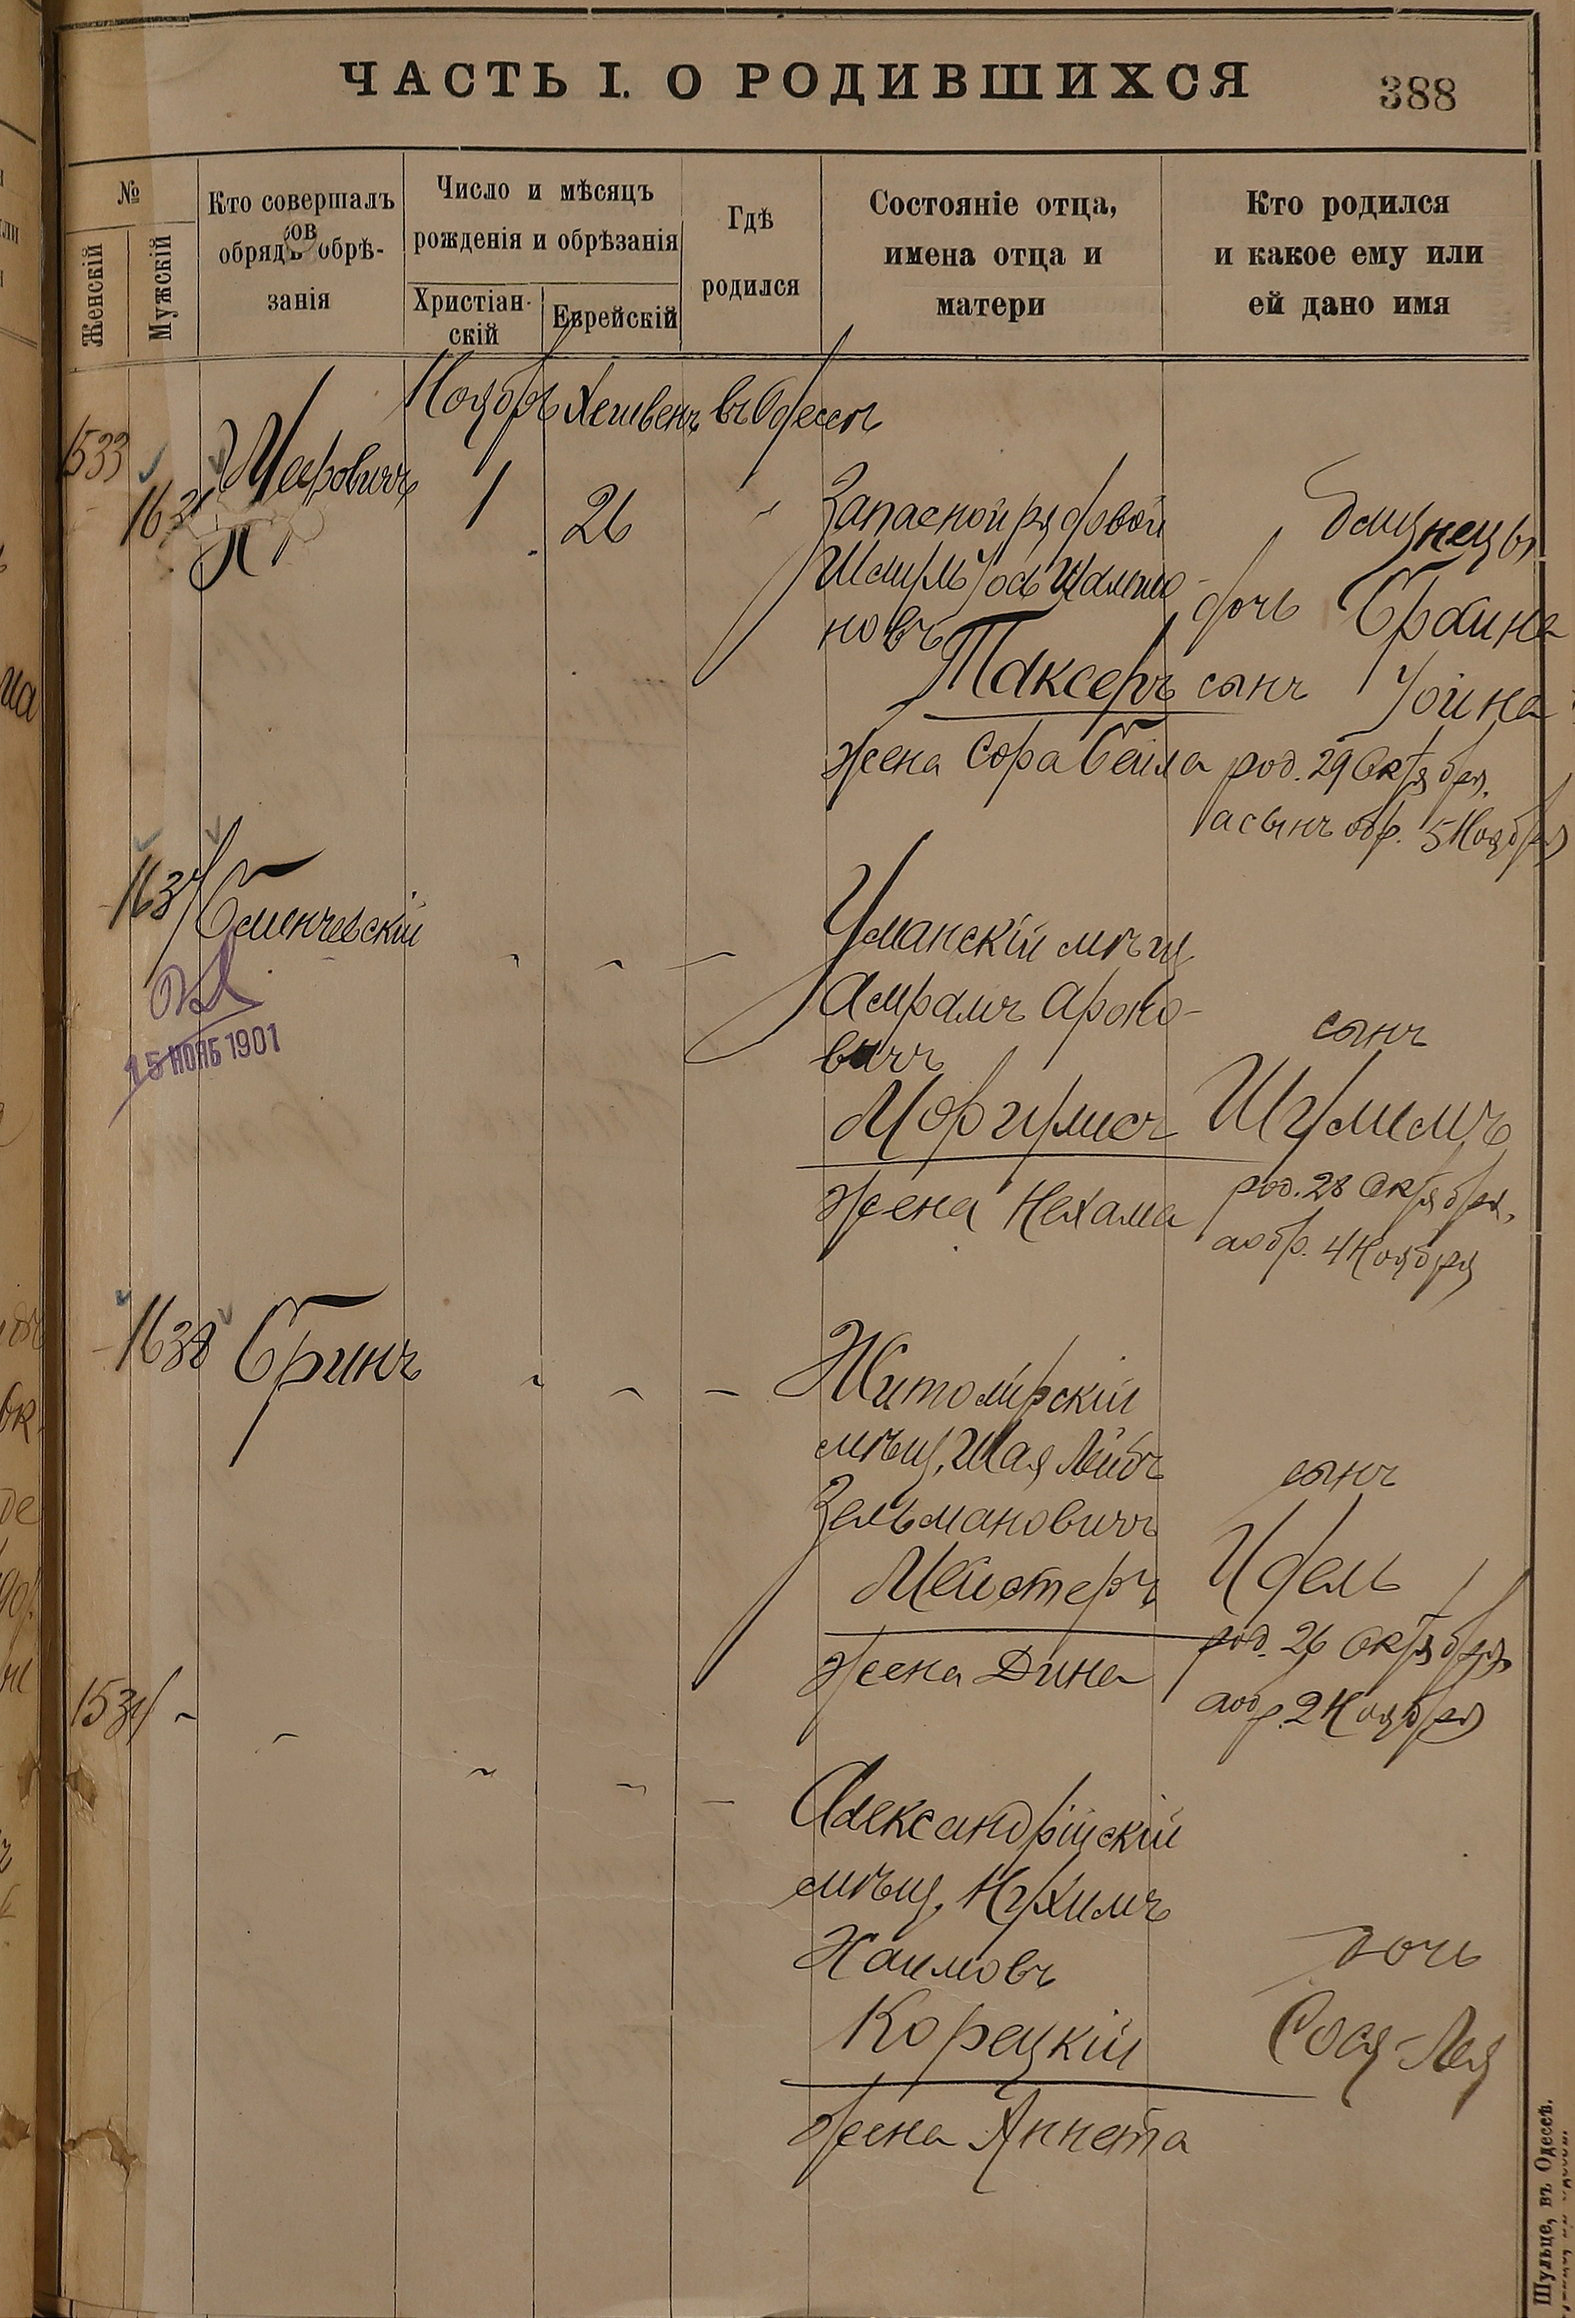 ЧАСТЬ I. О РОДИВШИХСЯ 388
№
Женскій
Мужскій
Кто совершалъ
ов
обрядъ обрѣ-
занія
Число и мѣсяцъ
рожденія и обрѣзанія
Христіан-
скій
Еврейскій
Гдѣ
родился
Состояніе отца,
имена отца и
матери
Кто родился
и какое ему или
ей дано имя
Ноябрь Хешвенъ въ Одессѣ
1533
Мееровичъ
1 26
Запасной рядовой
новъ
Таксеръ
жена Сора Бейла
близнецы
дочь Браина
сынъ Іойна
род. 29 Октября,
а сынъ обр. 5 Ноября
1637
15 НОЯБ 1901
Уманскій мѣщ
Амрамъ Ароно-
вичъ
Моргулисъ
жена Нехама
сынъ
Шулимъ
род. 28 Октября,
а обр. 4 Ноября
1638 Бринъ
Житомірскій
мѣщ. Шая Лейбъ
Зельмановичъ
Мейстеръ
жена Дина
сынъ
Идель
род. 26 Октября,
а обр. 2 Ноября
1534
Александрійскій
мѣщ. Нухимъ
Хаимовъ
Корецкій
жена Аннета
дочь
Сося-Лея
Шульце, въ Одессѣ.